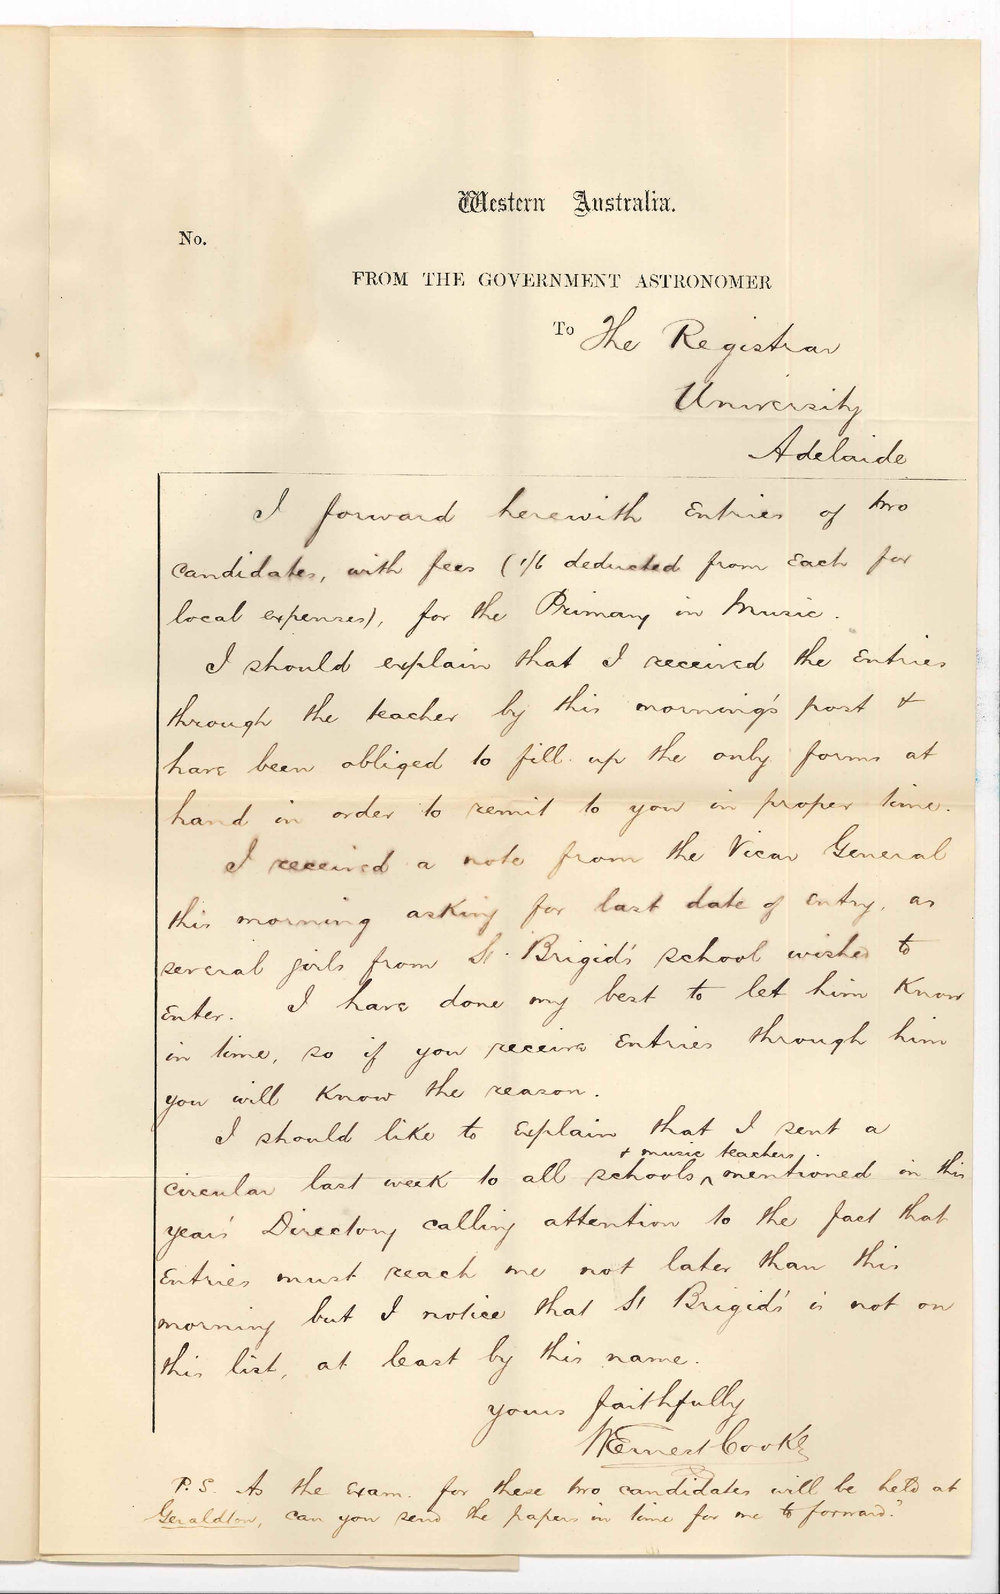 Western Australia.
No.
FROM THE GOVERNMENT ASTRONOMER
To The Registrar
University
Adelaide
I forward herewith Entries of two
candidates, with fees (1/6 deducted from Each for
local expenses), for the Primary in Music.
I should explain that I received the Entries
through the teacher by this morning's post &
have been obliged to fill up the only forms at
hand in order to remit to you in proper time.
I received a note from the Vicar General
this morning asking for last date of entry, as
several girls from St. Brigid's school wished to
Enter. I have done my best to let him Know
in time, so if you receive Entries through him
you will Know the reason.
I should like to Explain that I sent a
& music teachers
circular last week to all schools ^ mentioned in this
years' Directory calling attention to the fact that
Entries must reach me not later than this
morning but I notice that St Brigid's is not on
this list, at least by this name.
yours faithfully
W Ernest Cooke
P.S. As the Exam. for these two candidates will be held at
Geraldton, can you send the papers in time for me to forward?